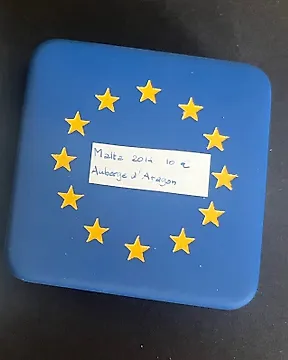 Malta 2014 10 €
Auberge d'Aragon